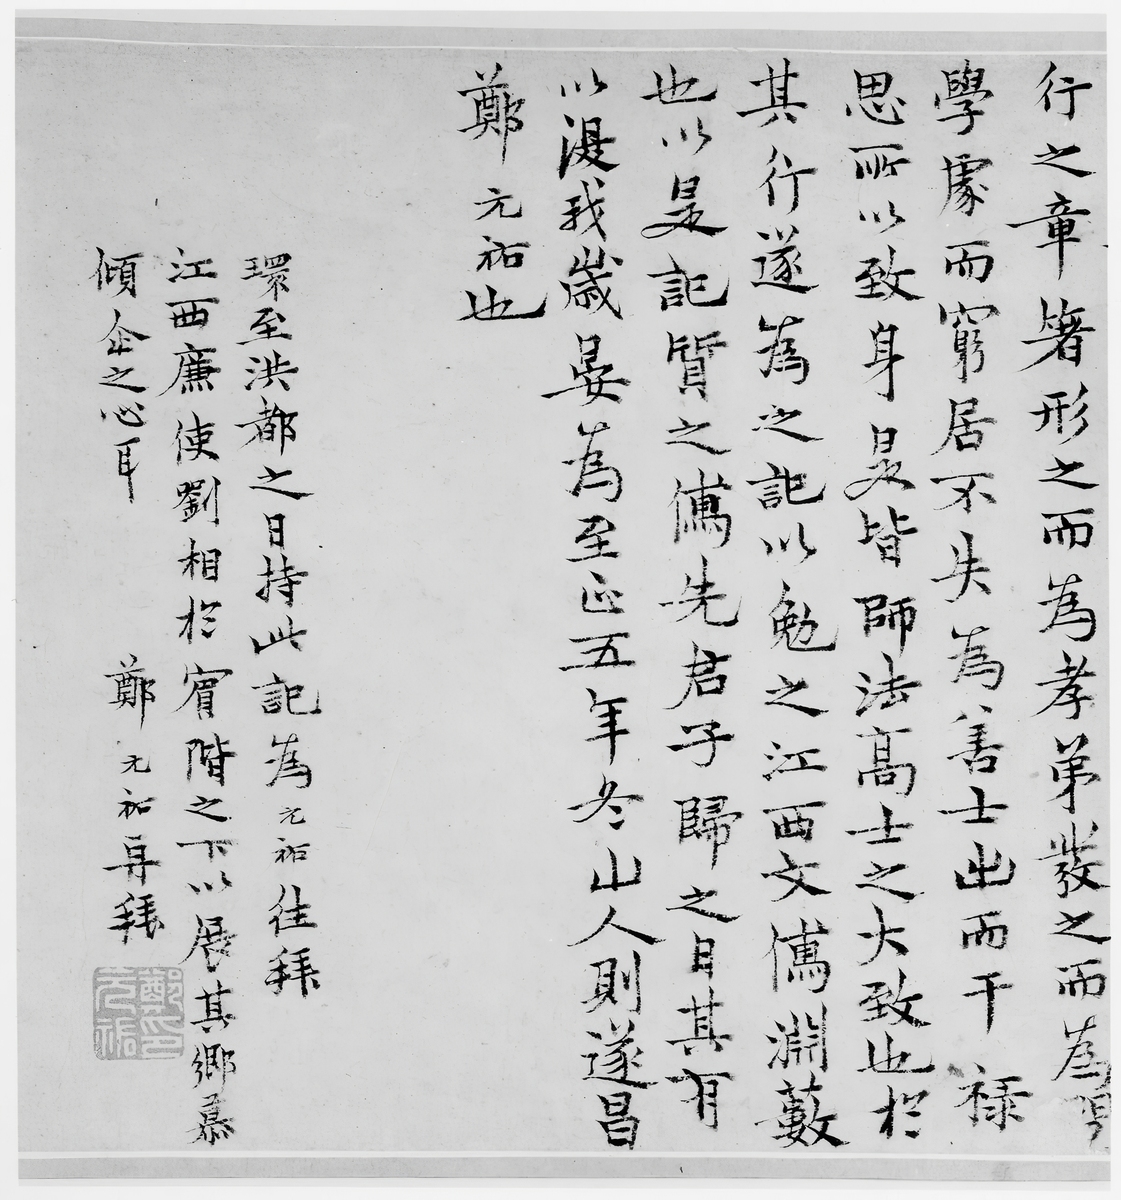 行之章箸形之而為孝弟發之而為
學處而窮居不失為善士出而干祿
思所以致身是皆師法高士之大致也於
其行遂為之記以勉之江西文儒淵藪
也以是記質之儒先君子歸之日其有
以漫我歲晏為至正五年冬山人則遂昌
鄭元祐也
環至洪都之日持此記為元祐往拜
江西廉使劉相於賓階之下以展其鄉慕
傾企之心耳
鄭元祐再拜
鄭元祐印